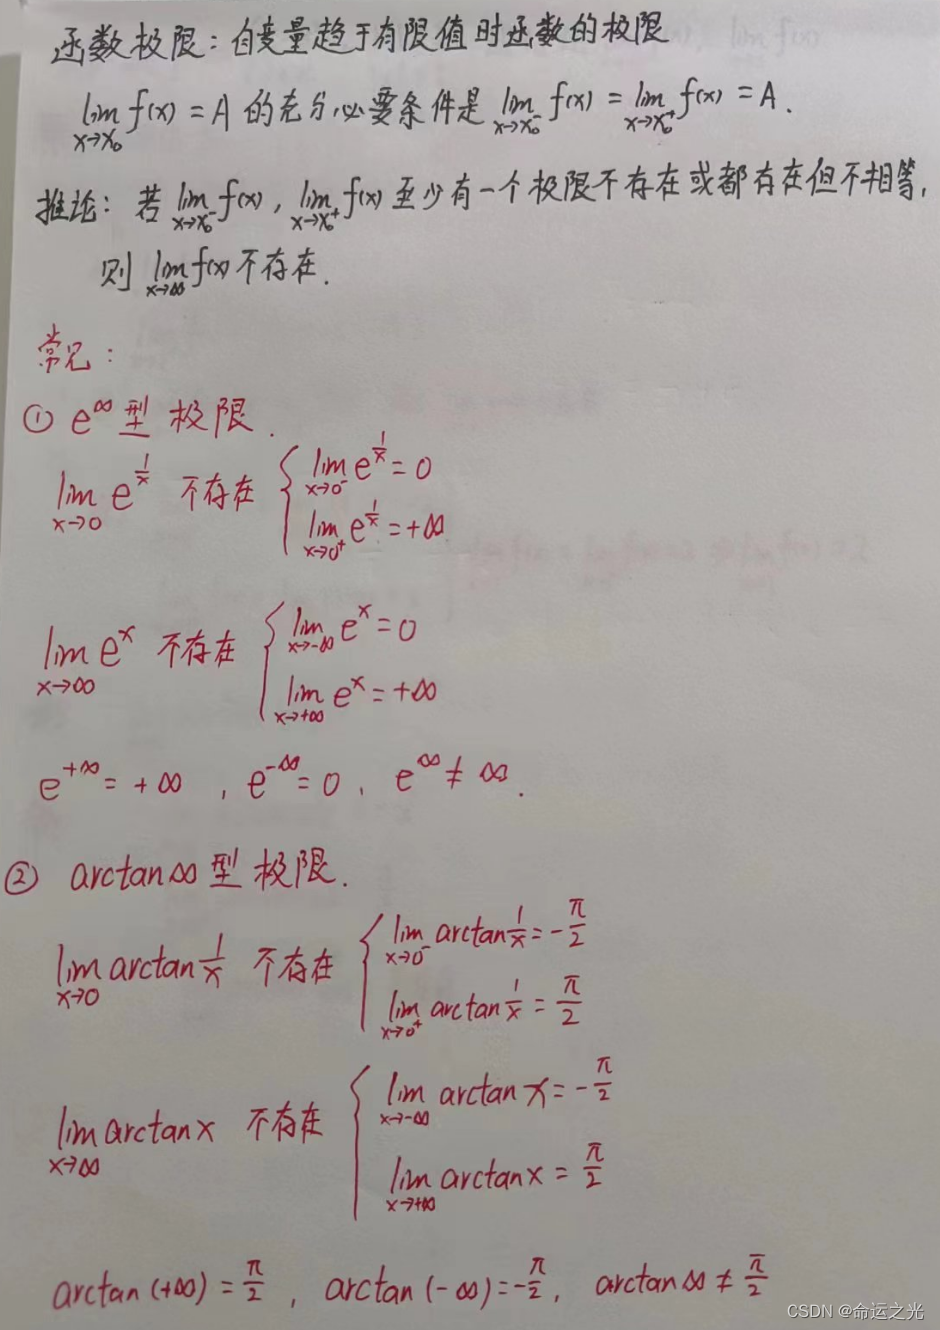 函数极限：自变量趋于有限值时函数的极限
lim_{x→x₀} f(x) = A 的充分必要条件是 lim_{x→x₀⁻} f(x) = lim_{x→x₀⁺} f(x) = A.
推论：若 lim_{x→x₀⁻} f(x), lim_{x→x₀⁺} f(x) 至少有一个极限不存在或都存在但不相等,
则 lim_{x→∞} f(x) 不存在.
常见：
① e^∞ 型 极限.
lim_{x→0} e^{1/x} 不存在 { lim_{x→0⁻} e^{1/x} = 0
lim_{x→0⁺} e^{1/x} = +∞
lim_{x→∞} e^x 不存在 { lim_{x→-∞} e^x = 0
lim_{x→+∞} e^x = +∞
e^{+∞} = +∞ , e^{-∞} = 0 , e^∞ ≠ ∞.
② arctan∞ 型 极限.
lim_{x→0} arctan 1/x 不存在 { lim_{x→0⁻} arctan 1/x = -π/2
lim_{x→0⁺} arctan 1/x = π/2
lim_{x→∞} arctan x 不存在 { lim_{x→-∞} arctan x = -π/2
lim_{x→+∞} arctan x = π/2
arctan(+∞) = π/2 , arctan(-∞) = -π/2 , arctan∞ ≠ π/2
CSDN @命运之光